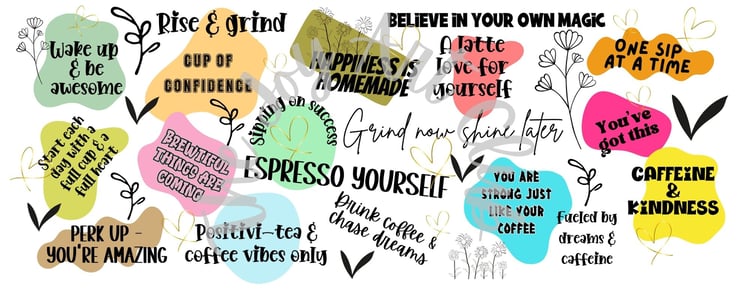 Rise & grind
BELIEVE IN YOUR OWN MAGIC
Wake up
& be
awesome
CUP OF
CONFIDENCE
HAPPINESS IS
HOMEMADE
A latte
love for
yourself
ONE SIP
AT A TIME
Start each
day with a
full cup & a
full heart
BREWTIFUL
THINGS ARE
COMING
Sipping on success
Grind now shine later
You've
got this
ESPRESSO YOURSELF
YOU ARE
STRONG JUST
LIKE YOUR
COFFEE
CAFFEINE
&
KINDNESS
PERK UP -
YOU'RE AMAZING
Positivi-tea &
coffee vibes only
Drink coffee &
chase dreams
Fueled by
dreams &
caffeine